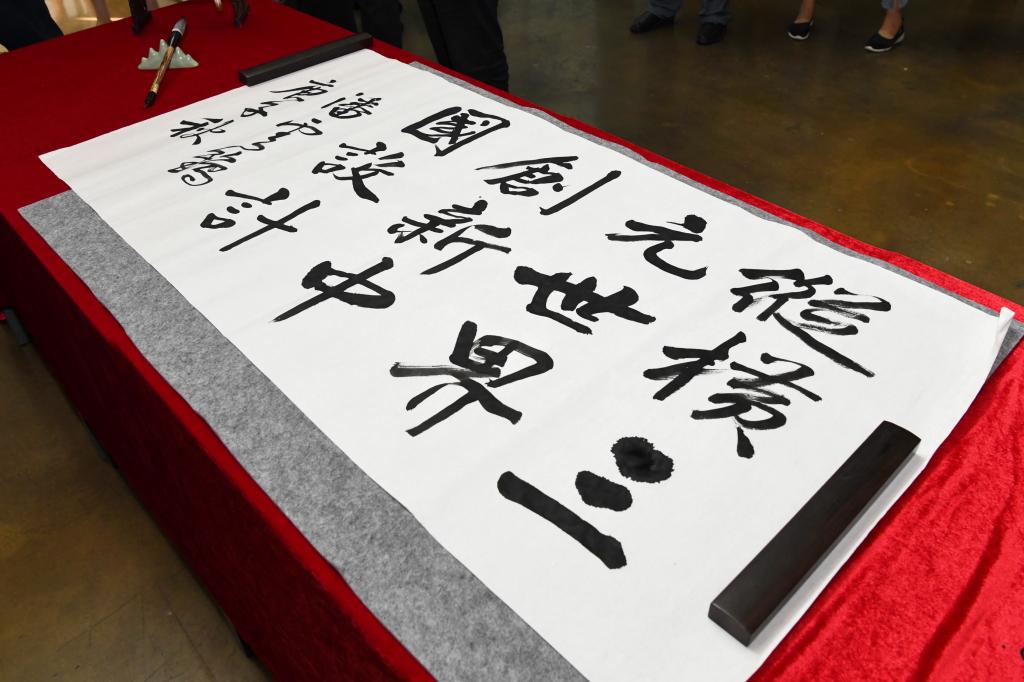 縱橫三
元世界
創新中
國設計
潘雲鶴
庚子秋